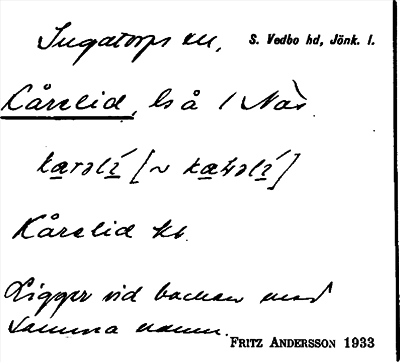 Ingatorps sn, S. Vedbo hd, Jönk. l.
Kårelid, ls å 1 Näs
Kårelid kt.
Ligger vid backen med
samma namn.
FRITZ ANDERSSON 1933